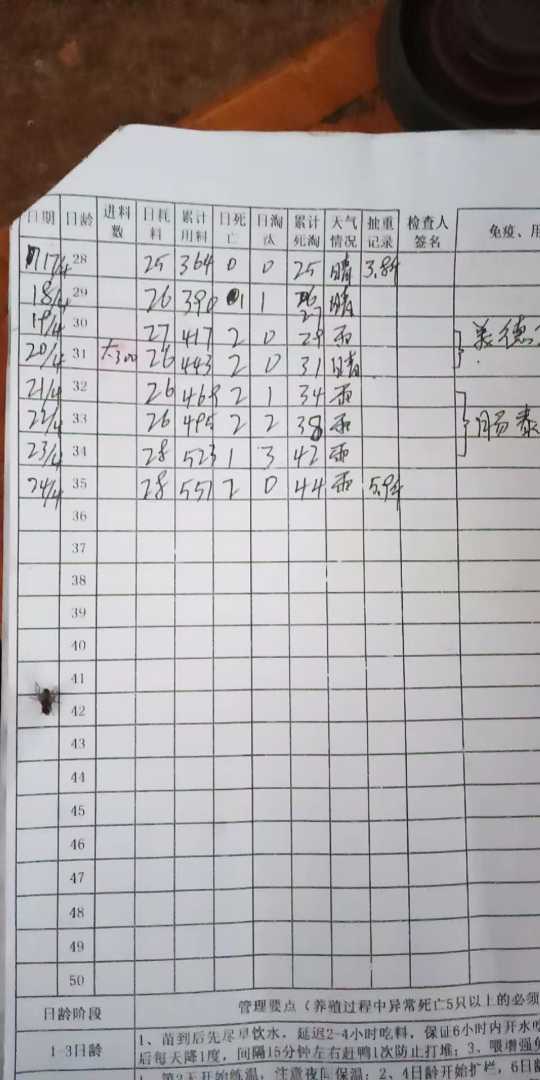 日期 日龄 进料数 日耗料 累计用料 日死亡 日淘汰 累计死淘 天气情况 抽重记录 检查人签名 免疫、用
17/4 28 25 364 0 0 25 晴 3.8斤
18/4 29 26 390 1 1 27 晴
19/4 30 27 417 2 0 29 雨
20/4 31 大300 26 443 2 0 31 晴
21/4 32 26 469 2 1 34 雨
22/4 33 26 495 2 2 38 雨
23/4 34 28 523 1 3 42 雨
24/4 35 28 551 2 0 44 雨 5.9斤
36
37
38
39
40
41
42
43
44
45
46
47
48
49
50
日龄阶段 管理要点（养殖过程中异常死亡5只以上的必须
1-3日龄 1、苗到后先尽早饮水，延迟2-4小时吃料，保证6小时内开水
后每天降1度，间隔15分钟左右赶鸭1次防止打堆；3、喂增强免
1、第3天开始练温，注意夜间保温；2、4日龄开始扩栏，6日龄